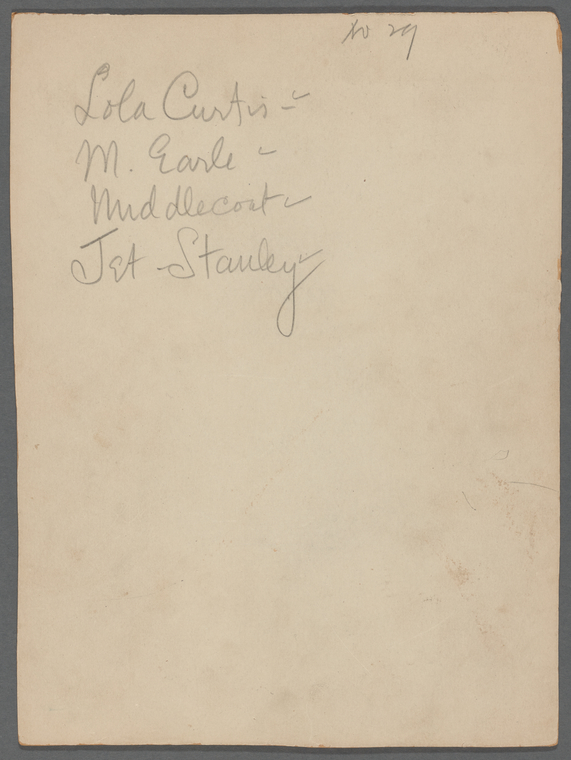 No 29
Lola Curtis -
M. Earle
Middlecoat
Jet Stanley